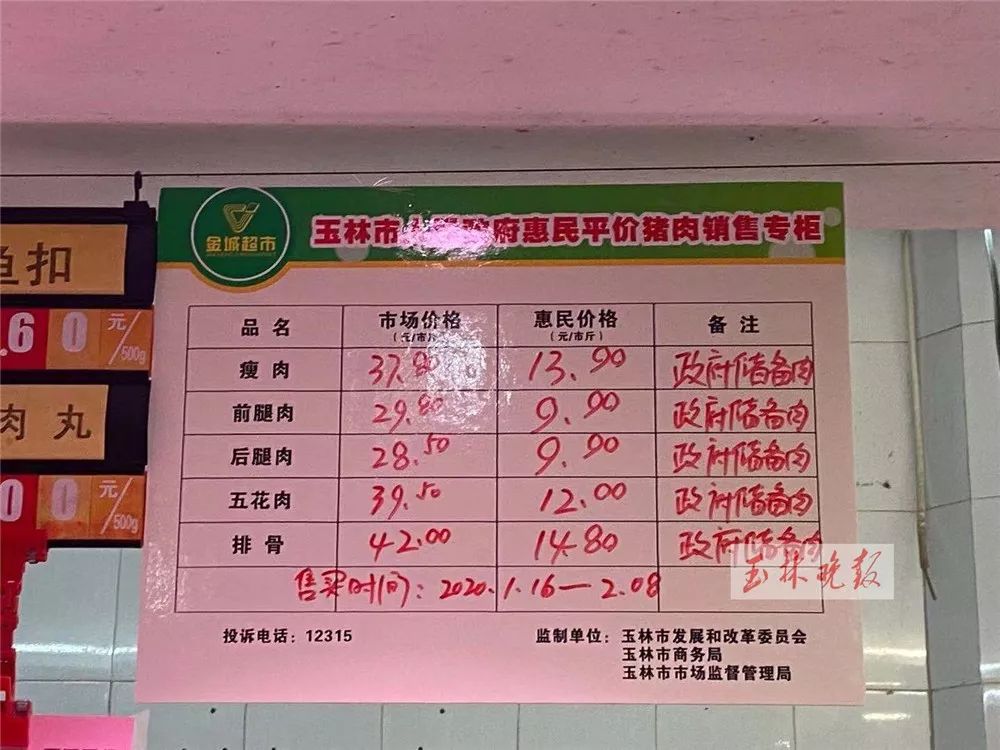 金城超市
玉林市人民政府惠民平价猪肉销售专柜
品名 市场价格（元/市斤） 惠民价格（元/市斤） 备注
瘦肉 37.80 13.90 政府储备肉
前腿肉 29.80 9.90 政府储备肉
后腿肉 28.50 9.90 政府储备肉
五花肉 39.50 12.00 政府储备肉
排骨 42.00 14.80 政府储备肉
售买时间：2020.1.16—2.08
投诉电话：12315
监制单位：玉林市发展和改革委员会
玉林市商务局
玉林市市场监督管理局
鱼扣
.60 元/500g
肉丸
00 元/500g
玉林晚报